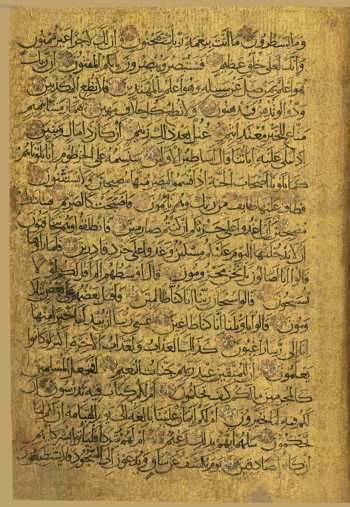 وما يسطرون ما أنت بنعمة ربك بمجنون وإن لك لأجرا غير ممنون
وإنك لعلى خلق عظيم فستبصر ويبصرون بأيكم المفتون إن ربك
هو أعلم بمن ضل عن سبيله وهو أعلم بالمهتدين فلا تطع المكذبين
ودوا لو تدهن فيدهنون ولا تطع كل حلاف مهين هماز مشاء بنميم
مناع للخير معتد أثيم عتل بعد ذلك زنيم أن كان ذا مال وبنين
إذا تتلى عليه آياتنا قال أساطير الأولين سنسمه على الخرطوم إنا بلوناهم
كما بلونا أصحاب الجنة إذ أقسموا ليصرمنها مصبحين ولا يستثنون
فطاف عليها طائف من ربك وهم نائمون فأصبحت كالصريم فتنادوا
مصبحين أن اغدوا على حرثكم إن كنتم صارمين فانطلقوا وهم يتخافتون
أن لا يدخلنها اليوم عليكم مسكين وغدوا على حرد قادرين فلما رأوها
قالوا إنا لضالون بل نحن محرومون قال أوسطهم ألم أقل لكم لولا
تسبحون قالوا سبحان ربنا إنا كنا ظالمين فأقبل بعضهم على بعض يتلا
ومون قالوا يا ويلنا إنا كنا طاغين عسى ربنا أن يبدلنا خيرا منها
إنا إلى ربنا راغبون كذلك العذاب ولعذاب الآخرة أكبر لو كانوا
يعلمون إن للمتقين عند ربهم جنات النعيم أفنجعل المسلمين
كالمجرمين ما لكم كيف تحكمون أم لكم كتاب فيه تدرسون إن
لكم فيه لما تخيرون أم لكم أيمان علينا بالغة إلى يوم القيامة إن لكم لما
تحكمون سلهم أيهم بذلك زعيم أم لهم شركاء فليأتوا بشركائهم
إن كانوا صادقين يوم يكشف عن ساق ويدعون إلى السجود فلا يستطيعون